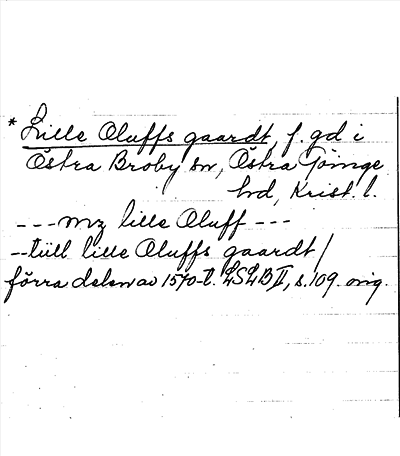 * Lille Oluffs gaardt, f. gd i
Östra Broby sn, Östra Göinge
hd, Krist. l.
---mz lille Oluff---
--tüll lille Oluffs gaardt/
förra delen av 1570-t. LSLB II, s. 109. orig.